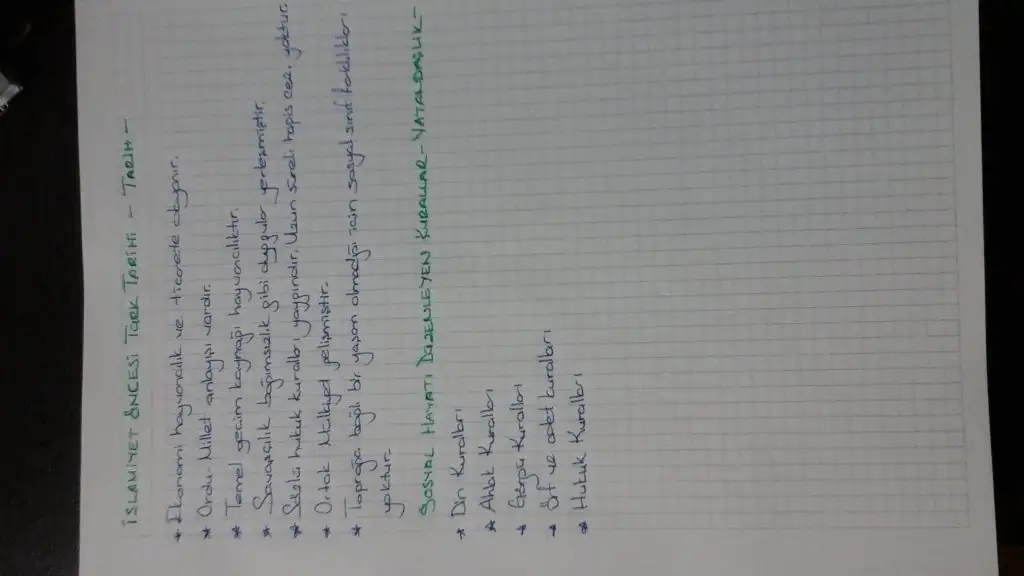 İSLAMİYET ÖNCESİ TÜRK TARİHİ - TARİH -
* Ekonomi hayvancılık ve ticarete dayanır.
* Ordu-Millet anlayışı vardır.
* Temel geçim kaynağı hayvancılıktır.
* Savaşçılık bağımsızlık gibi duygular yerleşmiştir.
* hukuk kuralları yaygındır. Uzun süreli hapis ceza. yoktur.
* Ortak Mülkiyet gelişmiştir.
* Toprağa bağlı bir yaşam olmadığı için sosyal sınıf farklılıkları
yoktur.
SOSYAL HAYATI DÜZENLEYEN KURALLAR - VATANDAŞLIK -
* Din Kuralları
* Ahlak Kuralları
* Görgü Kuralları
* Örf ve adet kuralları
* Hukuk Kuralları